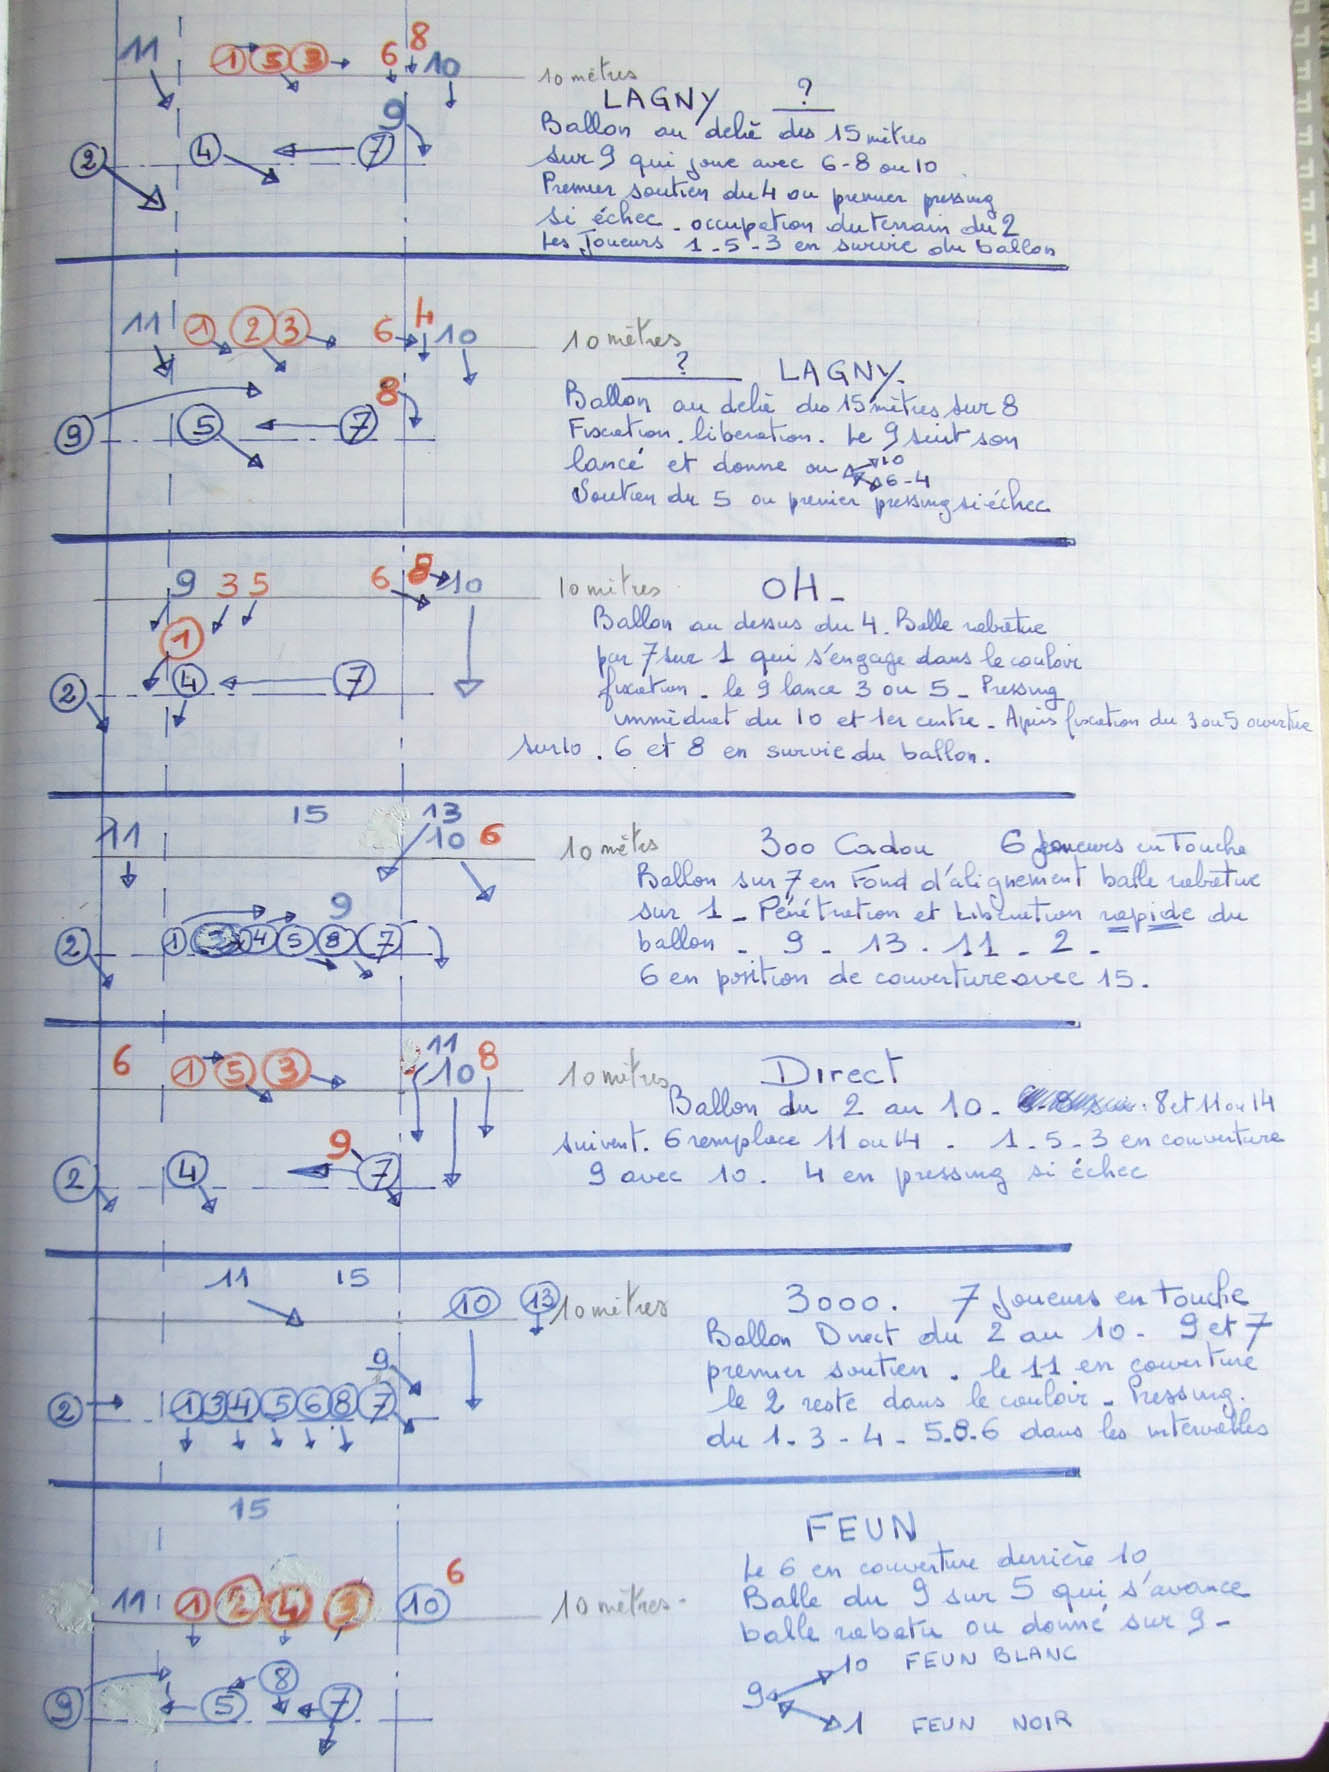 11 1 5 3 6 8 10 10 mètres
LAGNY ?
9
Ballon au delà des 15 mètres
2 4 7 sur 9 qui joue avec 6-8 ou 10
Premier soutien du 4 ou premier pressing
si échec - occupation du terrain du 2
Les Joueurs 1-5-3 en survie du ballon
11 1 2 3 6 4 10 10 mètres
? LAGNY.
8 Ballon au delà des 15 mètres sur 8
9 5 7 Fixation. libération. Le 9 suit son
lancé et donne ou 10
6-4
Soutien du 5 ou premier pressing si échec
9 3 5 6 8 10 10 mètres OH -
1 Ballon au dessus du 4. Balle rabatue
par 7 sur 1 qui s'engage dans le couloir
2 4 7 fixation - le 9 lance 3 ou 5 - Pressing
immédiat du 10 et 1er centre - Après fixation du 3 ou 5 ouverture
sur 10 . 6 et 8 en survie du ballon.
15 13
11 10 6 10 mètres 300 Cadou 6 joueurs en Touche
Ballon sur 7 en Fond d'alignement balle rabatue
9 sur 1 - Pénétration et Libération rapide du
2 1 3 4 5 8 7 ballon - 9 - 13 . 11 - 2 -
6 en position de couverture avec 15.
11
6 1 5 3 10 8 10 mètres Direct
Ballon du 2 au 10 - 8 et 11 ou 14
9 suivent. 6 remplace 11 ou 14 - 1-5-3 en couverture
2 4 7 9 avec 10. 4 en pressing si échec
11 15
10 13 10 mètres 3000. 7 Joueurs en touche
Ballon Direct du 2 au 10 - 9 et 7
9 premier soutien . le 11 en couverture
2 1 3 4 5 6 8 7 le 2 reste dans le couloir - Pressing.
du 1-3-4-5.8.6 dans les intervalles
15
FEUN
6 Le 6 en couverture derrière 10
11 1 2 4 3 10 10 mètres. Balle du 9 sur 5 qui s'avance
balle rabatu ou donné sur 9 -
8 10 FEUN BLANC
9 5 7 9
1 FEUN NOIR